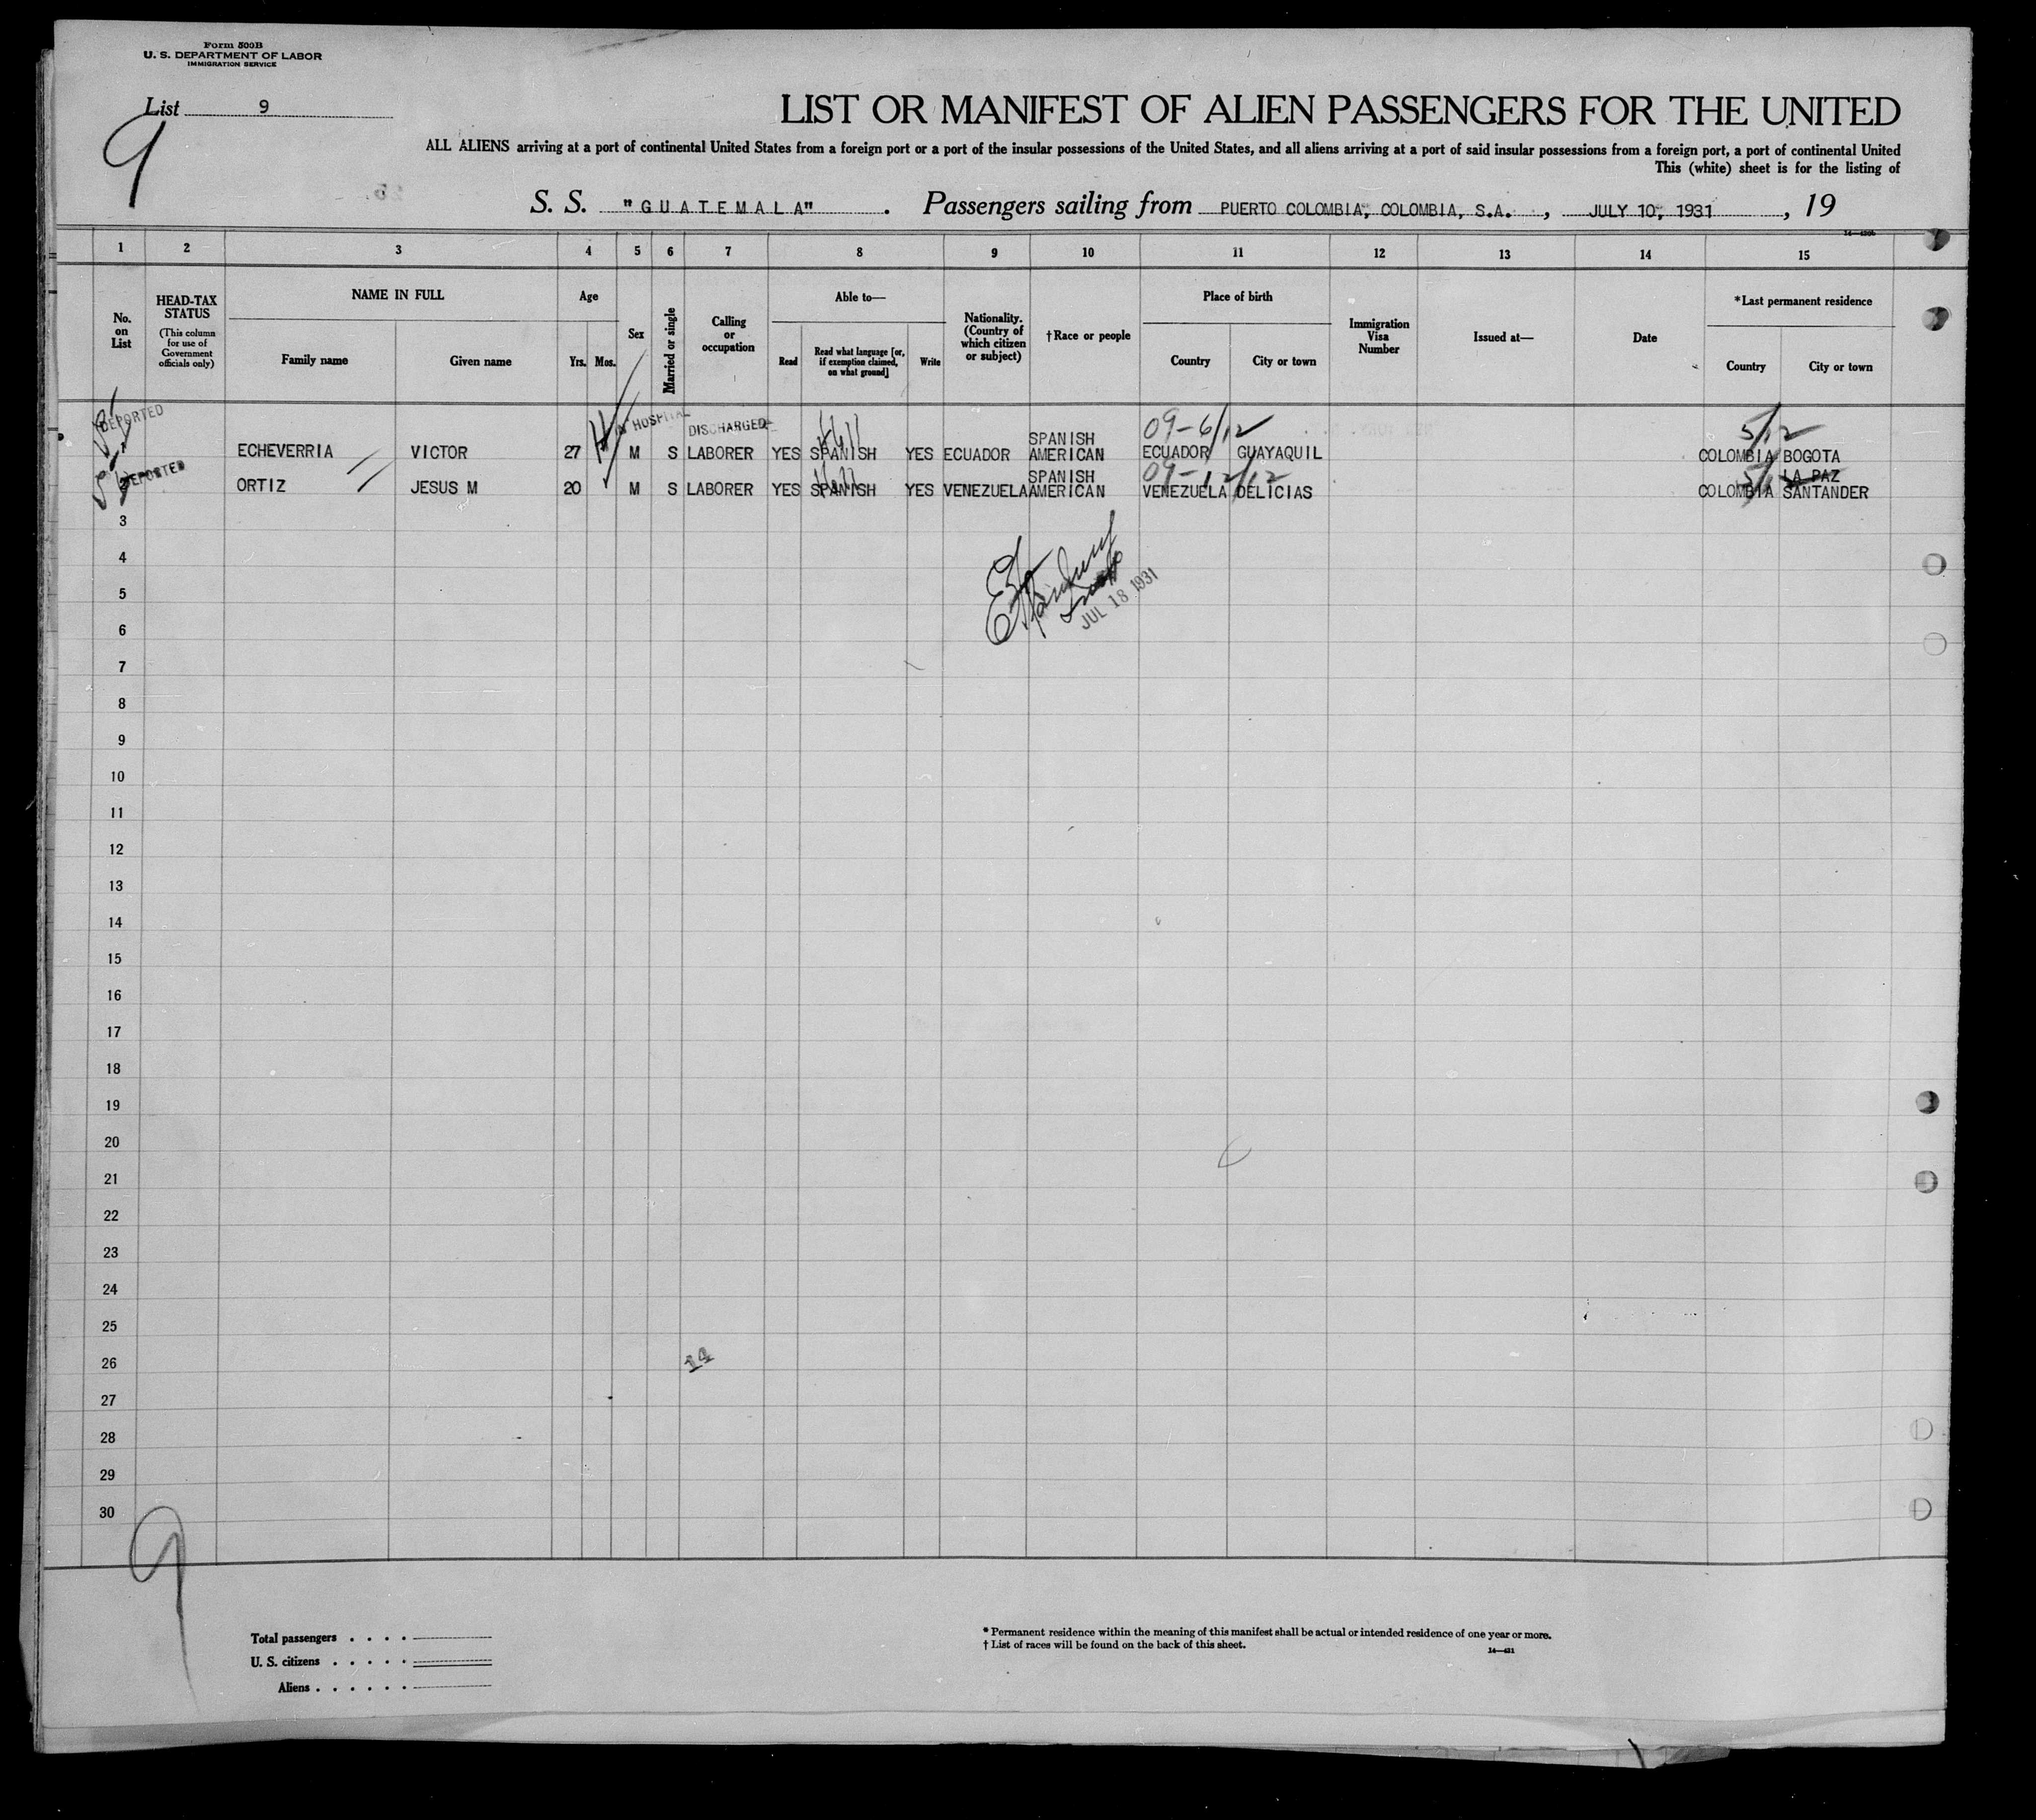 Form 500B
U. S. DEPARTMENT OF LABOR
IMMIGRATION SERVICE
List 9
9
LIST OR MANIFEST OF ALIEN PASSENGERS FOR THE UNITED
ALL ALIENS arriving at a port of continental United States from a foreign port or a port of the insular possessions of the United States, and all aliens arriving at a port of said insular possessions from a foreign port, a port of continental United
This (white) sheet is for the listing of
S. S. "GUATEMALA" . Passengers sailing from PUERTO COLOMBIA, COLOMBIA, S.A. , JULY 10, 1931 , 19
1 2 3 4 5 6 7 8 9 10 11 12 13 14 15
No. on List
HEAD-TAX STATUS
(This column for use of Government officials only)
NAME IN FULL
Family name Given name
Age
Yrs. Mos.
Sex
Married or single
Calling or occupation
Able to—
Read Read what language [or, if exemption claimed, on what ground] Write
Nationality. (Country of which citizen or subject)
†Race or people
Place of birth
Country City or town
Immigration Visa Number
Issued at—
Date
*Last permanent residence
Country City or town
DEPORTED HOSPITAL DISCHARGED 09-6/12 5/12
ECHEVERRIA VICTOR 27 M S LABORER YES SPANISH YES ECUADOR SPANISH AMERICAN ECUADOR GUAYAQUIL COLOMBIA BOGOTA
DEPORTED 09-12/12 LA PAZ
ORTIZ JESUS M 20 M S LABORER YES SPANISH YES VENEZUELA SPANISH AMERICAN VENEZUELA DELICIAS COLOMBIA SANTANDER
3
4
5
JUL 18 1931
6
7
8
9
10
11
12
13
14
15
16
17
18
19
20
21
22
23
24
25
26
14
27
28
29
30
9
Total passengers . . . .
U. S. citizens . . . . .
Aliens . . . . . .
* Permanent residence within the meaning of this manifest shall be actual or intended residence of one year or more.
† List of races will be found on the back of this sheet.
14—431